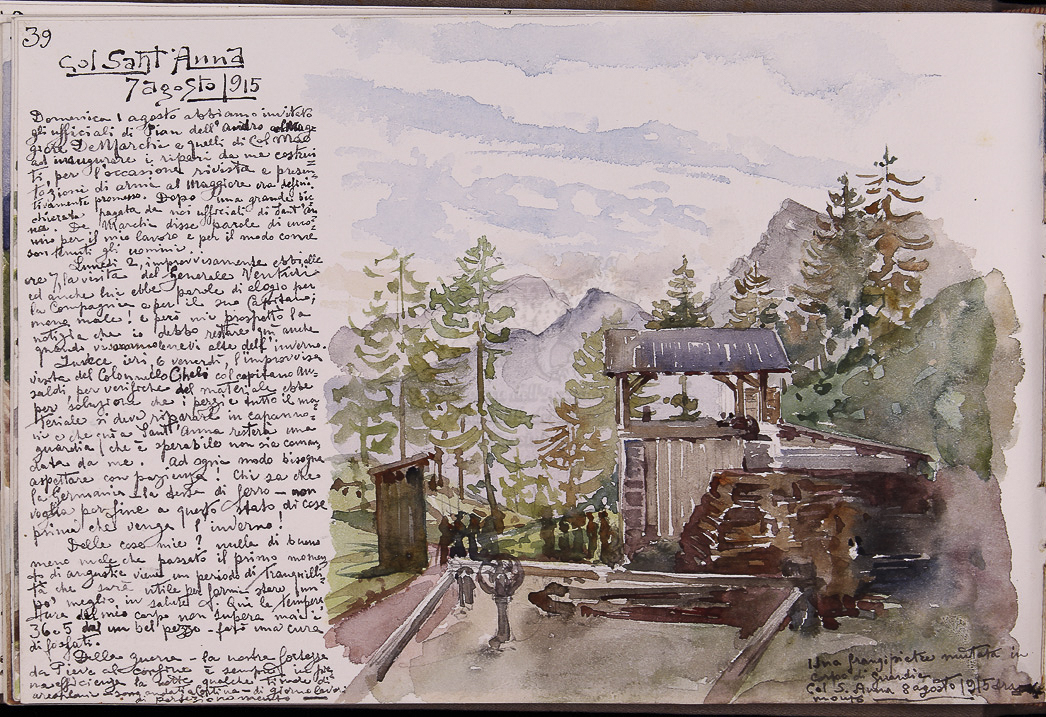 39
Col Sant'Anna
7 agosto 1915
Domenica 1 agosto abbiamo invitato
gli ufficiali di Pian dell'
giore De Marchi e quelli di Col
ad inaugurare i ripari da me costrui=
ti; per l'occasione rivista e presen=
tazione di armi al Maggiore ora defini=
tivamente promosso. Dopo una grande bic
chierata pagata da noi ufficiali di Sant'An
na. De Marchi disse parole di
per il mio lavoro e per il modo come
son tenuti gli uomini.
Lunedì 2, improvvisamente ebbi alle
ore 7 la visita del Generale Venturi
ed anche lui ebbe parole di elogio per
la Compagnia e per il suo Capitano;
meno male! e però mi prospettò la
notizia che io debbo restare quì anche
quando vi saranno le nevi alte dell'inverno.
Invece ieri, 6 venerdì, l'improvvisa
visita del Colonnello Chelì col capitano An
saldi per verifiche del materiale ebbe
per soluzione che i pezzi e tutto il ma
teriale si deve ripararli in capanno=
ni e che quì a Sant'Anna resterà una
guardia (che è sperabile non sia coman
data da me. Ad ogni modo bisogna
aspettare con pazienza! Chi sa che
la Germania - la dente di ferro - non
voglia por fine a questo stato di cose
prima che venga l'inverno!
Delle cose mie? nulla di buono
meno male che passato il primo momen
to di angustie viene un periodo di tranquilli
tà che sarà utile per farmi stare un
po' meglio in salute. Quì la tempera
tura del mio corpo non supera mai i
36.5 da un bel pezzo - farò una cura
di fosfati.
Della guerra - la nostra fortezza
da Pieve al confine è sempre in pie
na efficienza la notte qualche tirata di
- di giorno lavori
di perfezionamento
Una frangipietre mutata in
corpo di guardia
Col S. Anna 8 agosto 1915